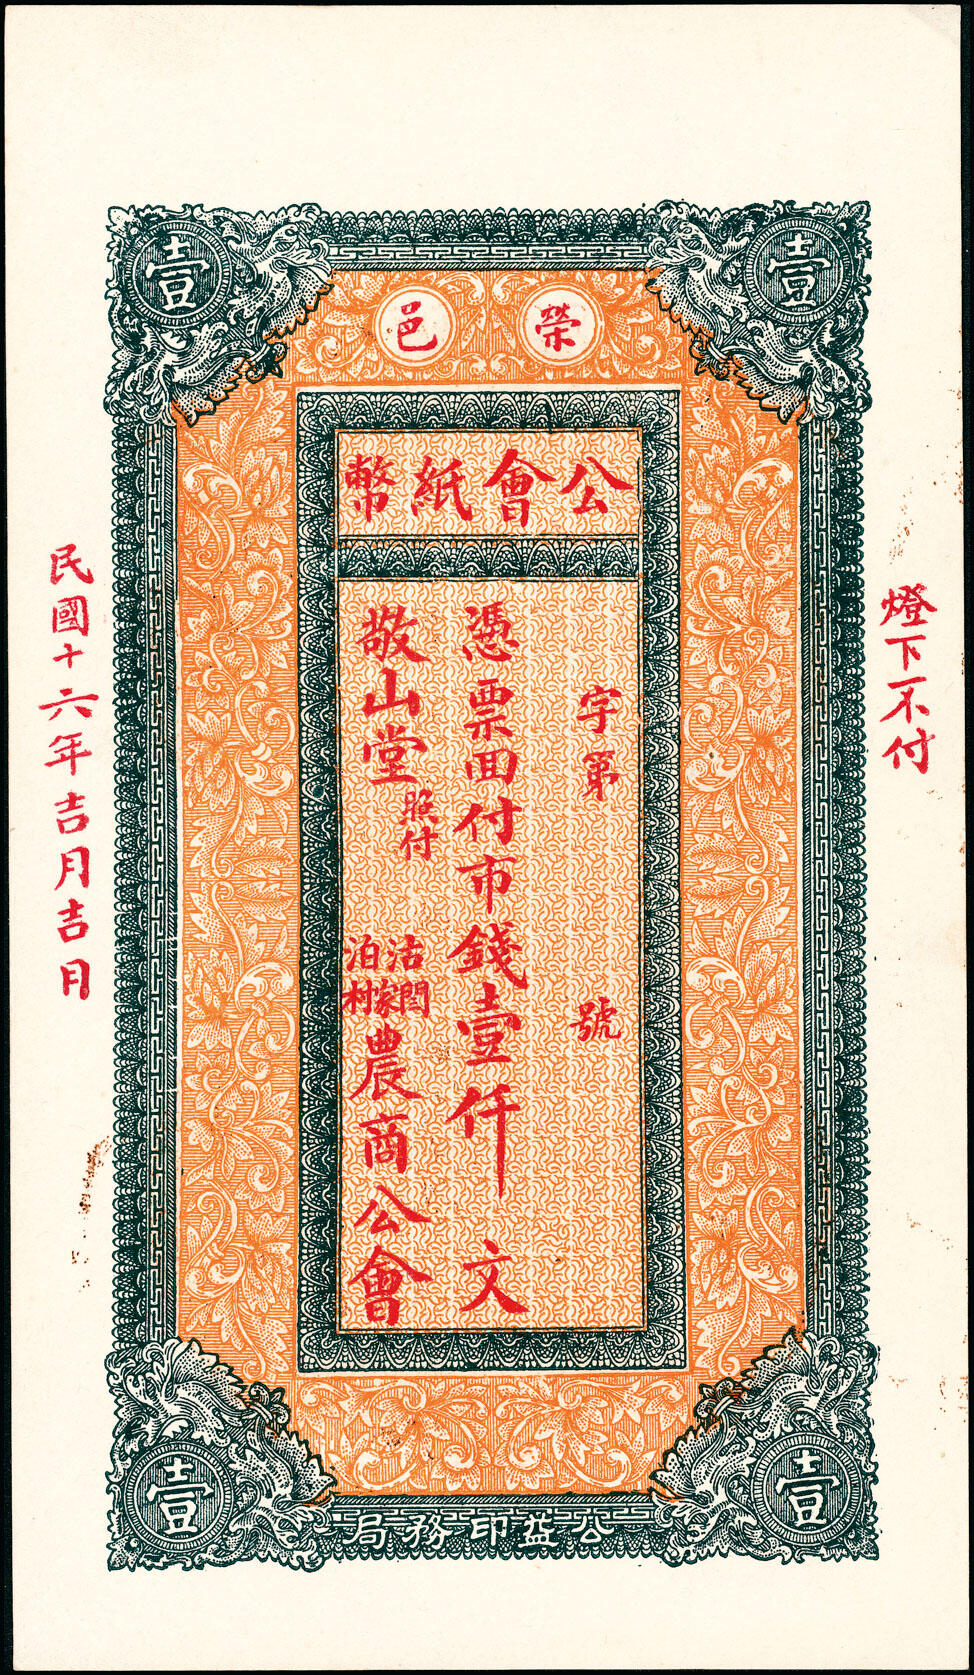 壹
壹
榮邑
公會紙幣
燈下不付
字第 號
憑票面付市錢壹仟文
敬山堂照付
沽閆家泊村農商公會
民國十六年吉月吉日
壹
壹
公益印務局